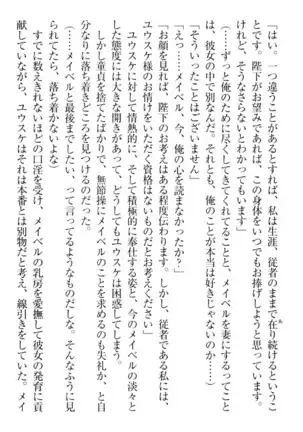 「はい。一つ違うことがあるとすれば、私は生涯、従者のままで在り続けるというこ
とです。陛下がお望みであれば、この身体をいつでもお捧げしようと思っています。
けれど、そうなさらないとわかってもいます」
（……ずっと俺のために尽くしてきてくれてることと、メイベルを妻にするってこと
は、彼女の中で別なんだ。それとも、俺のことが本当は好きではないのか……）
「そういったことはございません」
「えっ……メイベル、今、俺の心を読まなかったか？」
「お顔を見れば、陛下のお考えはある程度伝わります。しかし、従者である私には、
ユウスケ様のお情けをいただく資格はないものだとお考えください」
ユウスケに対して情熱的に、そして積極的に奉仕する姿と、今のメイベルの淡々と
した態度には大きな開きがあって、どうしてもユウスケは困惑してしまう。
しかし童貞を捨てたばかりで、無節操にメイベルのことを求めるのも失礼か、と自
分なりに落ち着きどころを見つけるのだった。
（……メイベルと最後までしたい、って言ってるようなものだしな。そんなふうに見
られてたら、落ち着かないよな）
すでに数えきれないほどの口淫を受け、メイベルの乳房を愛撫して彼女の発育に貢
献していながら、ユウスケはそれは本番とは別物だと考え、線引きをしていた。メイ